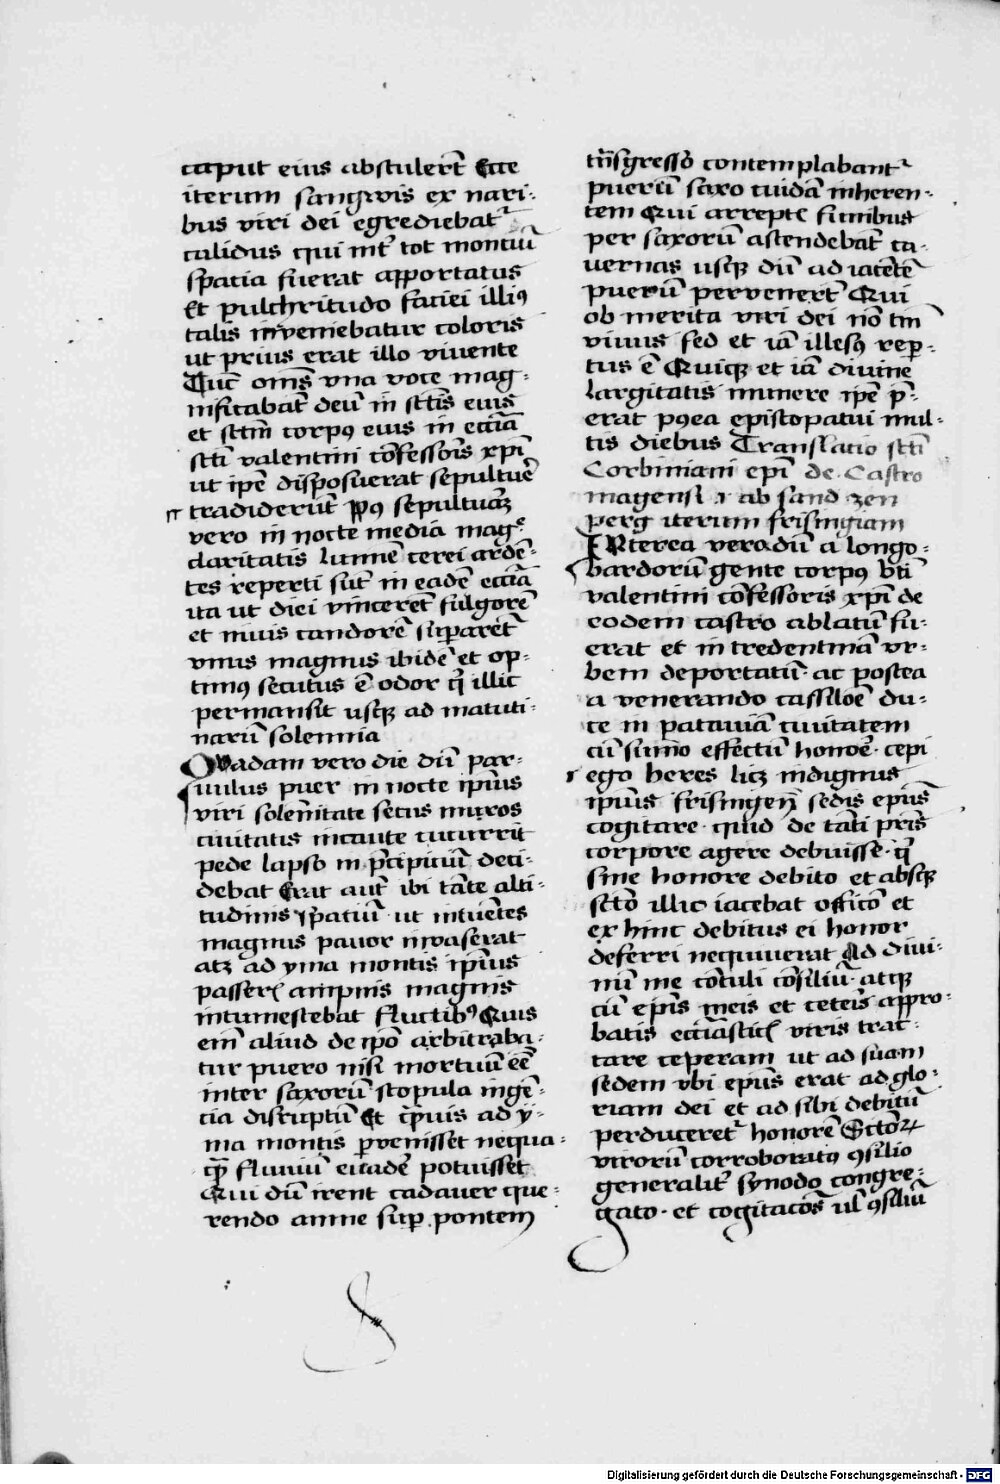 caput eius abstulerūt Ecce
iterum sangwis ex nari-
bus viri dei egrediebat᷑
calidus qui int̄ tot montiū
spacia fuerat apportatus
Et pulchritudo faciei illiꝰ
talis inveniebatur coloris
ut prius erat illo vivente
Tūc om̄s vna voce mag-
nificabāt deū in sc̄tis eius
et sc̄tm̄ corpꝰ eius in eccīa
sc̄ti valentini cōfessoris xpī
ut ip̄e disposuerat sepulture
tradiderūt
vero in nocte media maḡ
claritatis lumīe cerei ardē-
tes reperti sūt in eadē eccīa
ita ut diei vincerēt fulgorē
et nivis candorē suparēt᷑
vnus magnus ibidē et op-
timꝰ secutus ē odor q̄ illic
permansit usqꝫ ad matuti-
narū solemnia
Quadam vero die dū par-
uulus puer in nocte ipīus
viri solemnitate secus muros
civitatis incaute cucurrit
pede lapso in p̄cipiciū deci-
debat Erat aut̄ ibi tāte alti-
tudinis spatiū ut intuētes
magnus pavor invaserat
atqꝫ ad yma montis ipīus
passerꝭ ampnis magnis
intumescebat fluctibꝰ Quis
em̄ aliud de ip̄o arbitraba-
tur puero nisi mortuū eē
inter saxorū scopula ingē-
cia disruptū Et q̄uis ad y-
ma montis pervenisset nequa-
q̄ fluviū euadē potuisset
Qui dū irent cadauer que-
rendo amne sup pontem
trāsgresso contemplabant᷑
puerū saxo cuidā inheren-
tem Qui arreptꝭ funibus
per saxorū ascendebāt ca-
uernas usqꝫ dū ad iacētē
puerū pervenerūt Qui
ob merita viri dei nō tm̄
vivus sed et iā illesꝰ reper-
tus ē Quiqꝫ et iā divine
largitatis munere ip̄e p̄-
erat pꝰea episcopatui mul-
tis diebus Translacio sc̄ti
Corbiniani ep̄i de Castro
magensi ab sand zen
perg iterum frisingiam
INterea vero dū a longo-
bardorū gente corpꝰ bt̄i
valentini cōfessoris xpī de
eodem castro ablatū fu-
erat et in tredentinā vr-
bem deportatū ac postea
a venerando tassiloē du-
ce in pataviā civitatem
cū sūmo effectū honoē cepi
ego heres licꝫ indignus
ipīus frisingen̄ sedis ep̄us
cogitare quid de tāti pr̄is
corpore agere debuisse q̄
sine honore debito et absqꝫ
sc̄to illic iacebat officō et
ex hinc debitus ei honor
deferri nequiverat Ad divi-
nū me cōtuli cōsiliū atqꝫ
cū ep̄is meis et ceteris appro-
batis eccīasticꝭ viris trac-
tare ceperam ut ad suam
sedem vbi ep̄us erat ad glo-
riam dei et ad sibi debitū
perduceret᷑ honorē Sc̄toꝝ
virorū corroboratꝰ ꝯsilio
generalit᷑ synodo congre-
gato et cogitacōs ul̄ ꝯsiliū